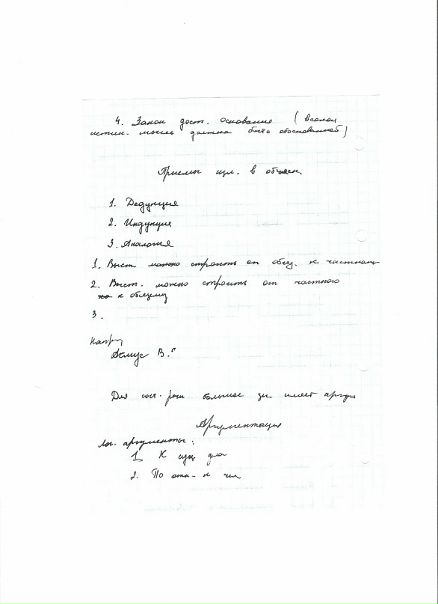 4. Закон дост. основание (всякая
истин. мысль должна быть обоснованной)
Приемы изл. в объясн.
1. Дедукция
2. Индукция
3. Аналогия
1. Выст. можно строить от общ. к частному
2. Выст. можно строить от частного
к общему
3.
В."
Для речи большое зн. имеет
Аргументация
Лог. аргументы:
1. К
2. По